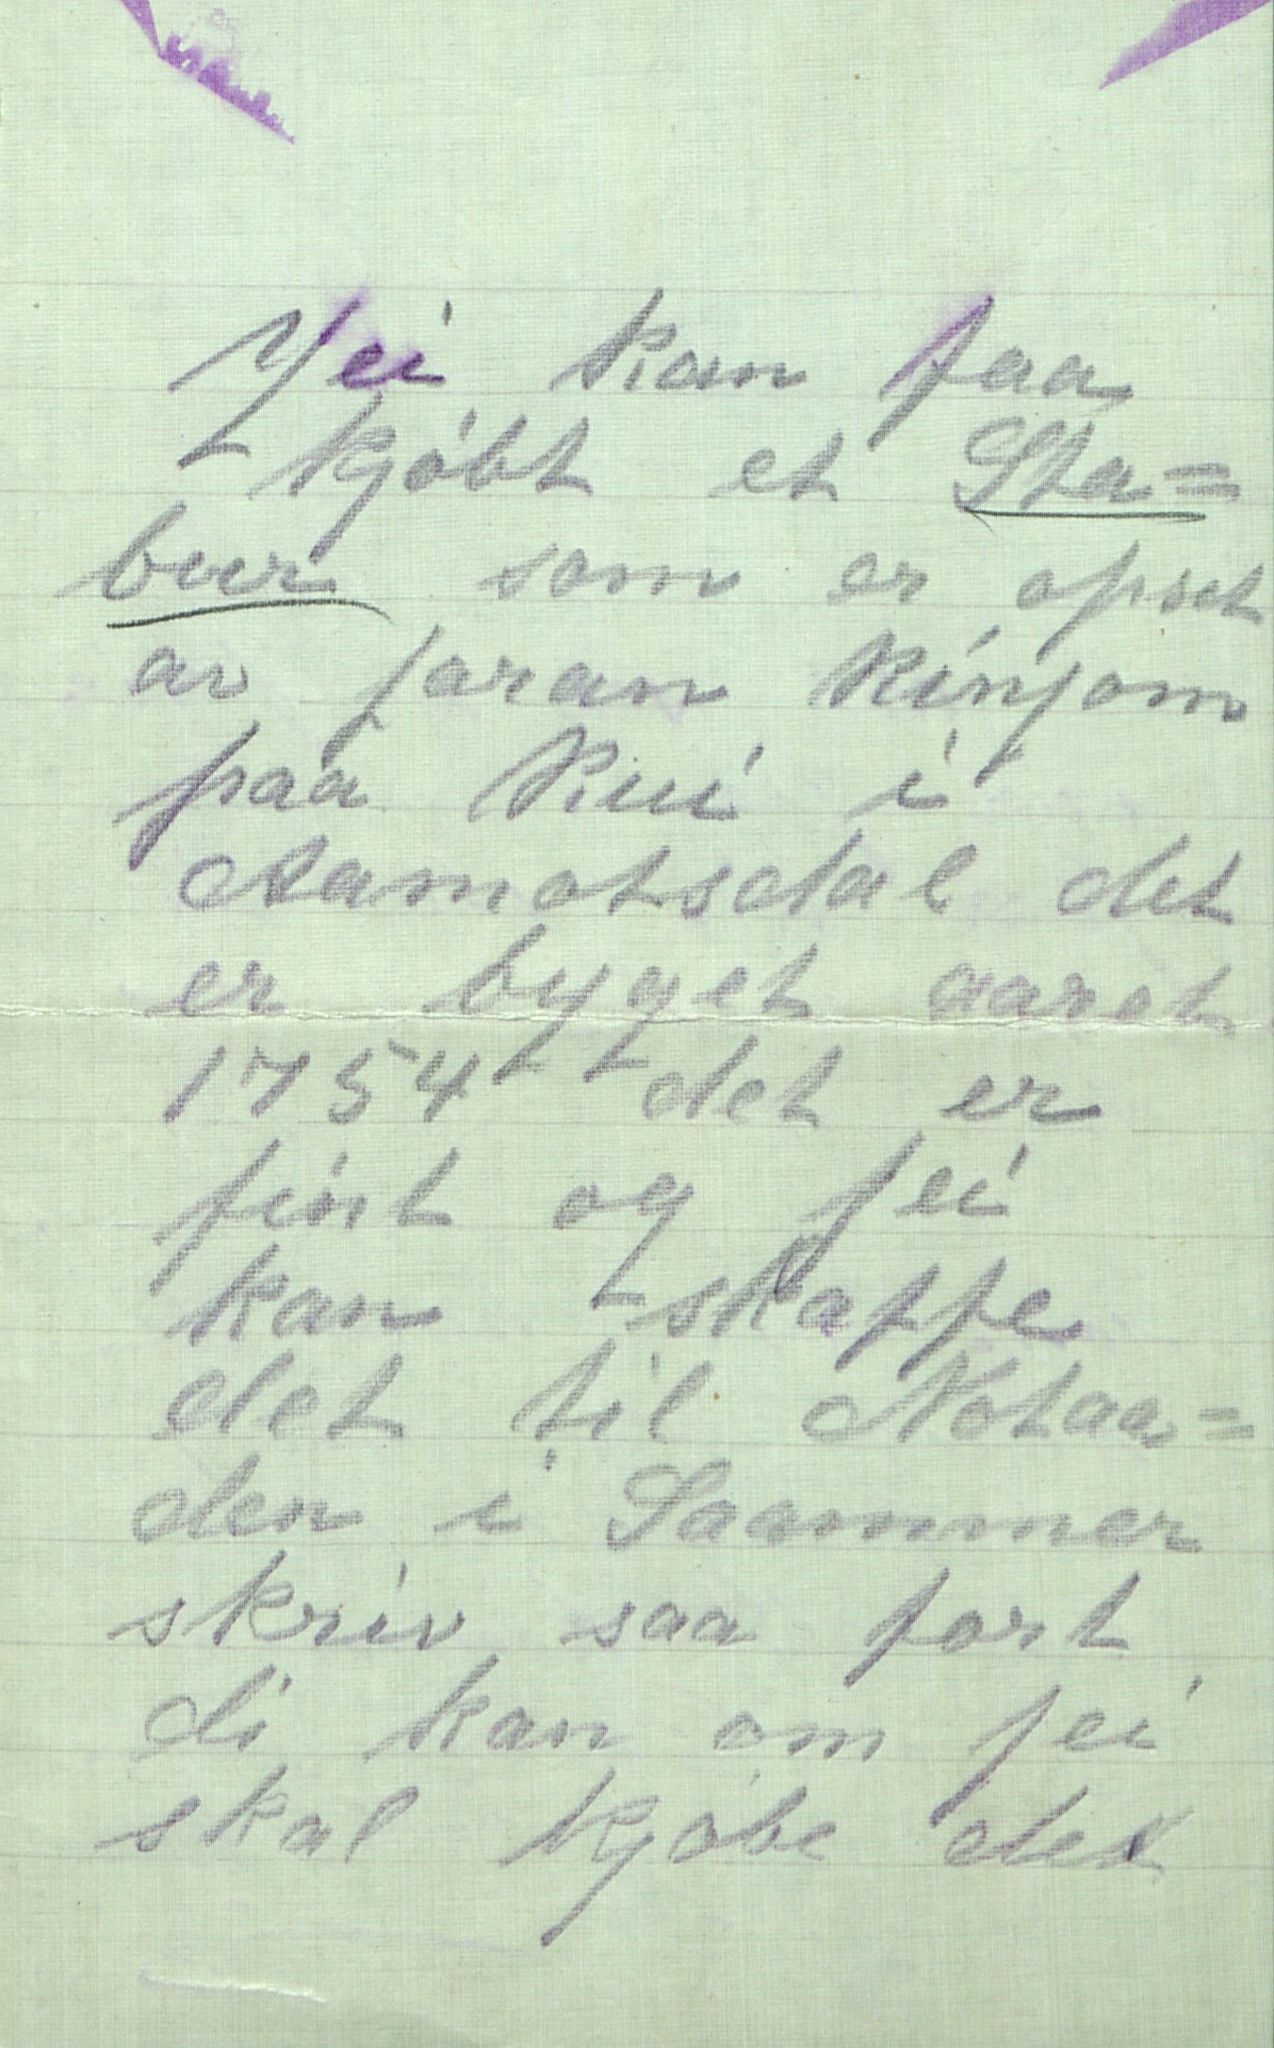 Jei kan faa
kjöbt et Sta=
buer som er opset
av Jaran Rinjom
paa Rui i
Aamotsdal det
er byget aaret
1754 det er
fint og jei
kan skaffe
det til Notaa=
den i Saammer
skriv saa fort
di kan om jei
skal kjøbe det